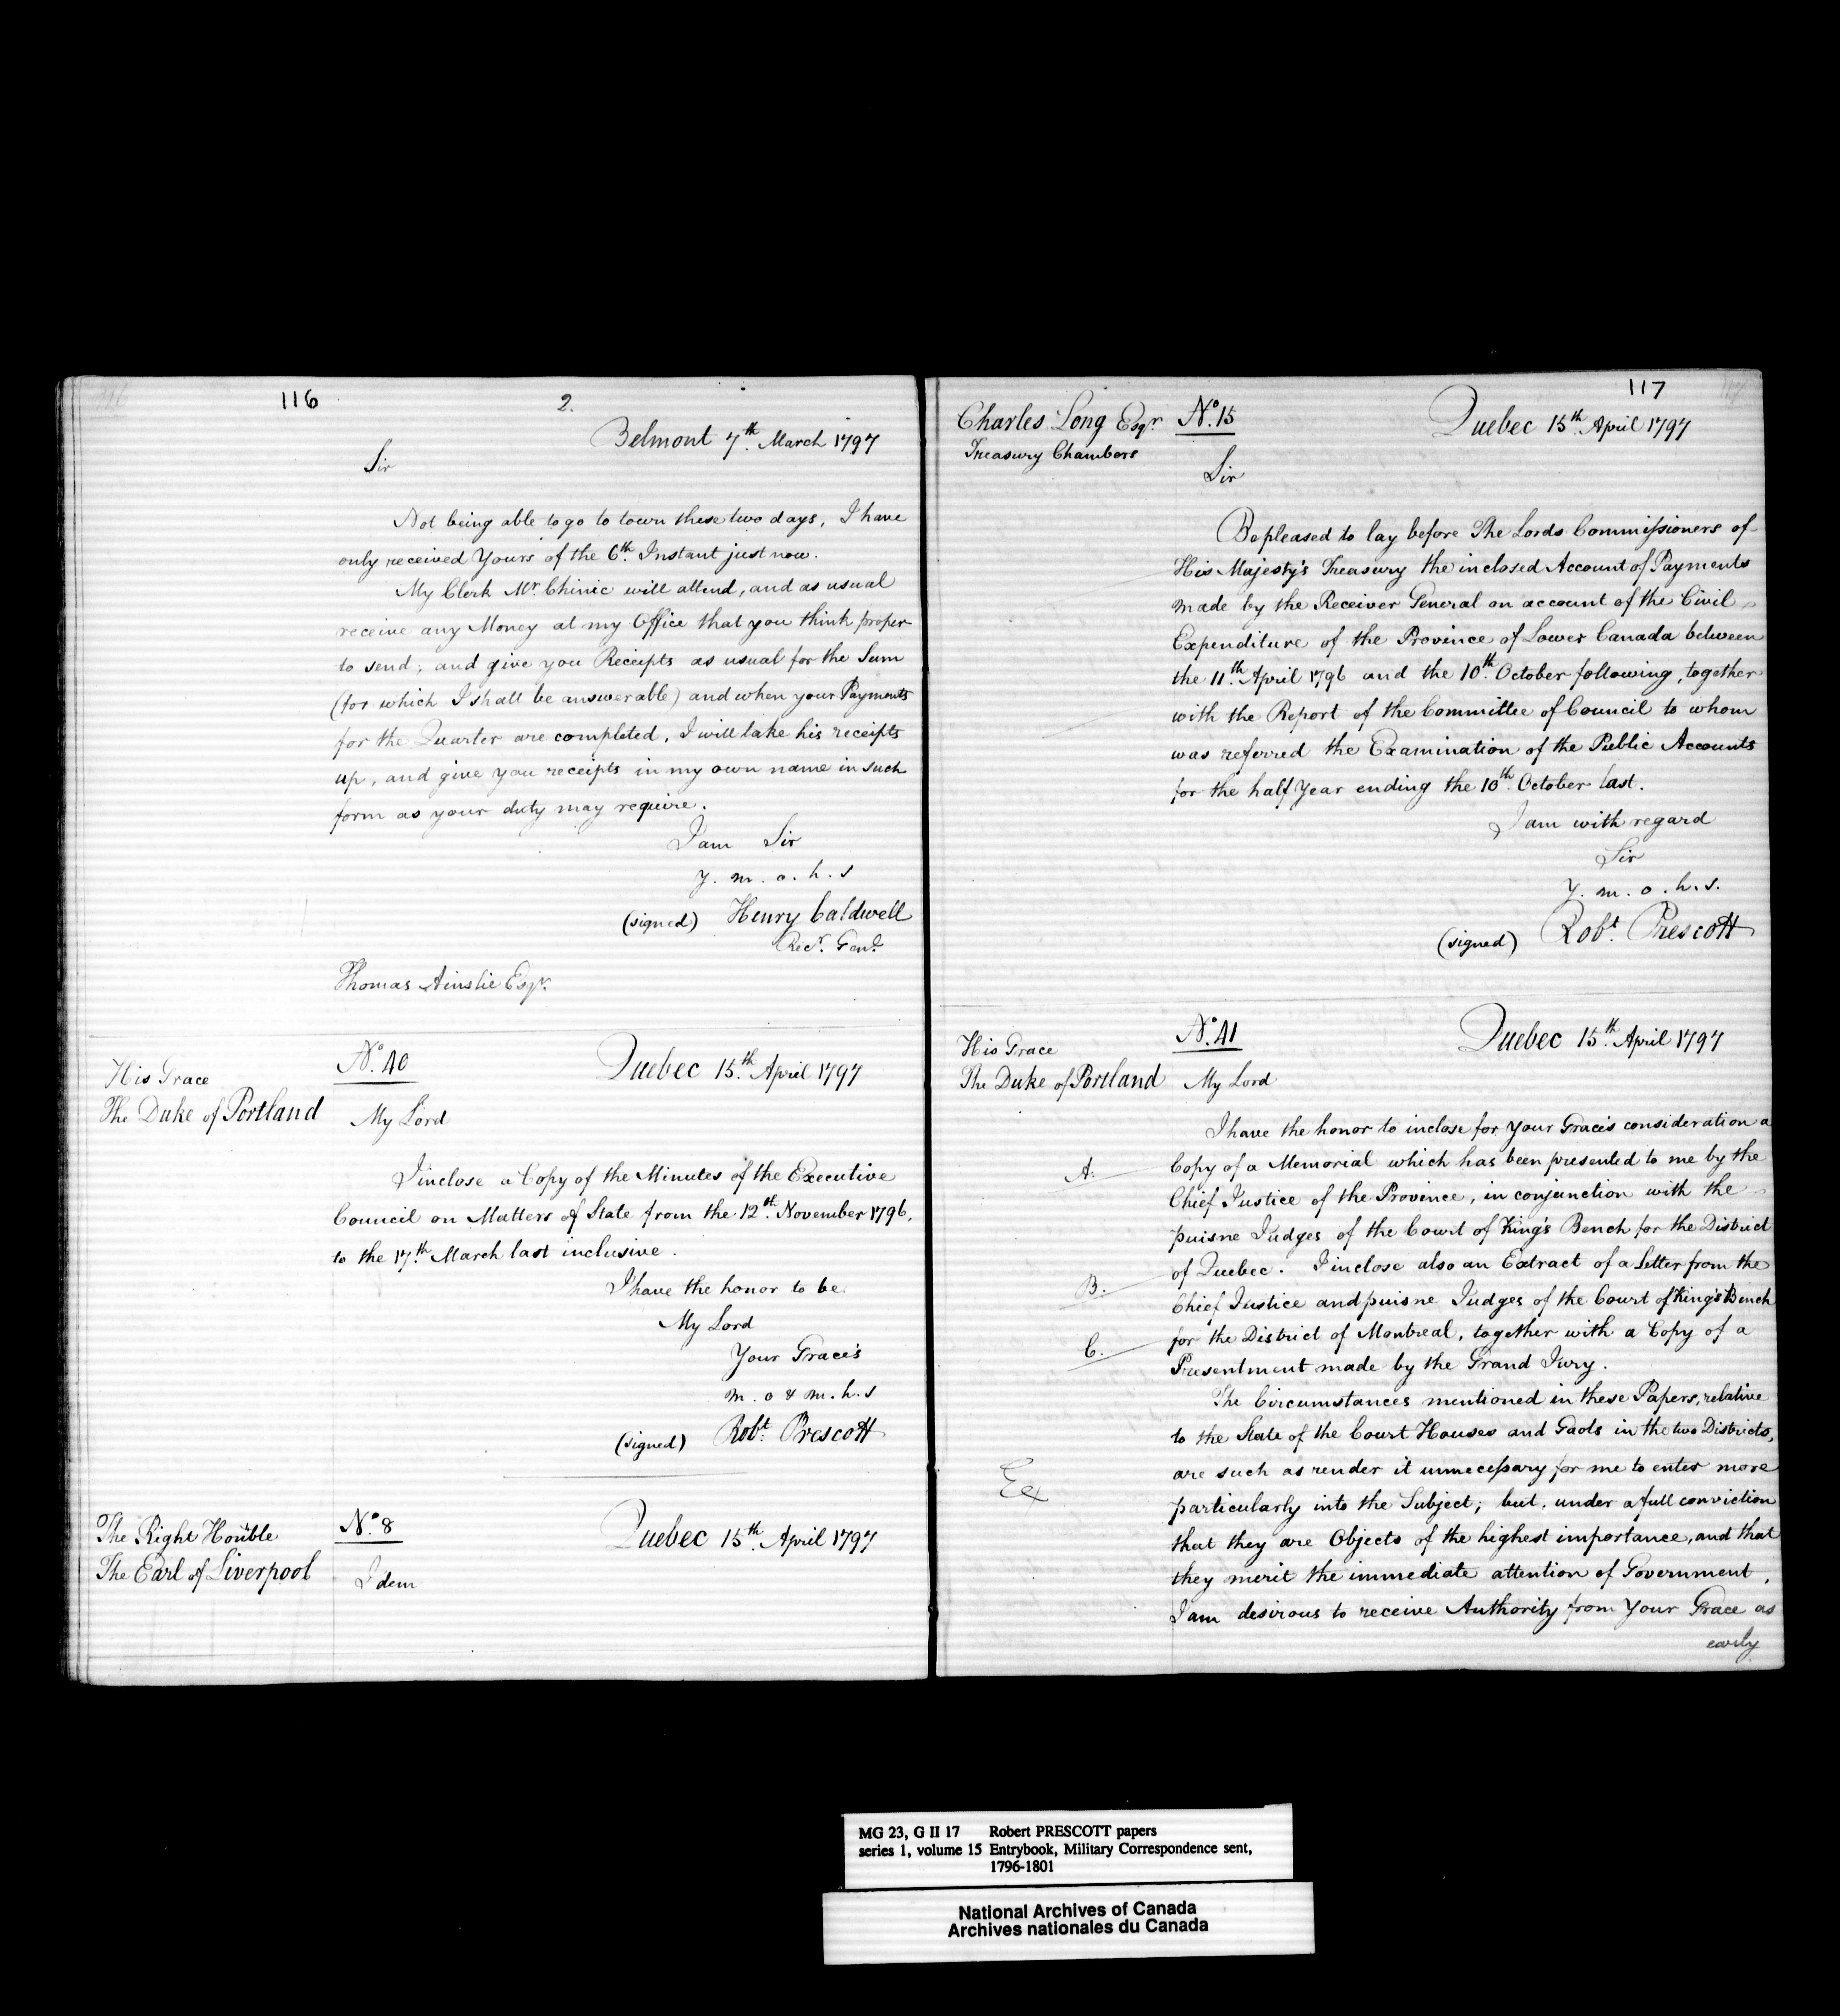 116
2.
Belmont 7th. March 1797
Sir
Not being able to go to town these two days, I have
only received Yours of the 6th. Instant just now.
My Clerk Mr. Chinic will attend, and as usual
receive any Money at my Office that you think proper
to send; and give you Receipts as usual for the Sum
(for which I shall be answerable) and when your Payments
for the Quarter are completed, I will take his receipts
up, and give you receipts in my own name in such
form as your duty may require.
I am Sir
y. m. o. h. s
(signed) Henry Caldwell
Recr. Genl.
Thomas Ainslie Esqr.
His Grace
The Duke of Portland
No. 40
Quebec 15th. April 1797
My Lord
I inclose a Copy of the Minutes of the Executive
Council on Matters of State from the 12th. November 1796,
to the 17th. March last inclusive.
I have the honor to be
My Lord
Your Grace's
m. o & m. h. s
(signed) Robt. Prescott
The Right Honble
The Earl of Liverpool
No. 8
Quebec 15th. April 1797
Idem
117
Charles Long Esqr.
Treasury Chambers
No. 15
Quebec 15th. April 1797
Sir
Be pleased to lay before The Lords Commissioners of
His Majesty's Treasury the inclosed Account of Payments
made by the Receiver General on account of the Civil
Expenditure of the Province of Lower Canada between
the 11th. April 1796 and the 10th. October following, together
with the Report of the Committee of Council to whom
was referred the Examination of the Public Accounts
for the half Year ending the 10th. October last.
I am with regard
Sir
y. m. o. h. s.
(signed) Robt. Prescott
His Grace
The Duke of Portland
No. 41
Quebec 15th. April 1797
My Lord
I have the honor to inclose for Your Grace's consideration a
A. Copy of a Memorial which has been presented to me by the
Chief Justice of the Province, in conjunction with the
puisne Judges of the Court of King's Bench for the District
B. of Quebec. I inclose also an Extract of a Letter from the
Chief Justice and puisne Judges of the Court of King's Bench
C. for the District of Montreal, together with a Copy of a
Presentment made by the Grand Jury.
The Circumstances mentioned in these Papers, relative
to the State of the Court Houses and Gaols in the two Districts,
Ex
are such as render it unnecessary for me to enter more
particularly into the Subject; but, under a full conviction
that they are Objects of the highest importance, and that
they merit the immediate attention of Government,
I am desirous to receive Authority from Your Grace as
early
MG 23, G II 17 Robert PRESCOTT papers
series 1, volume 15 Entrybook, Military Correspondence sent,
1796-1801
National Archives of Canada
Archives nationales du Canada